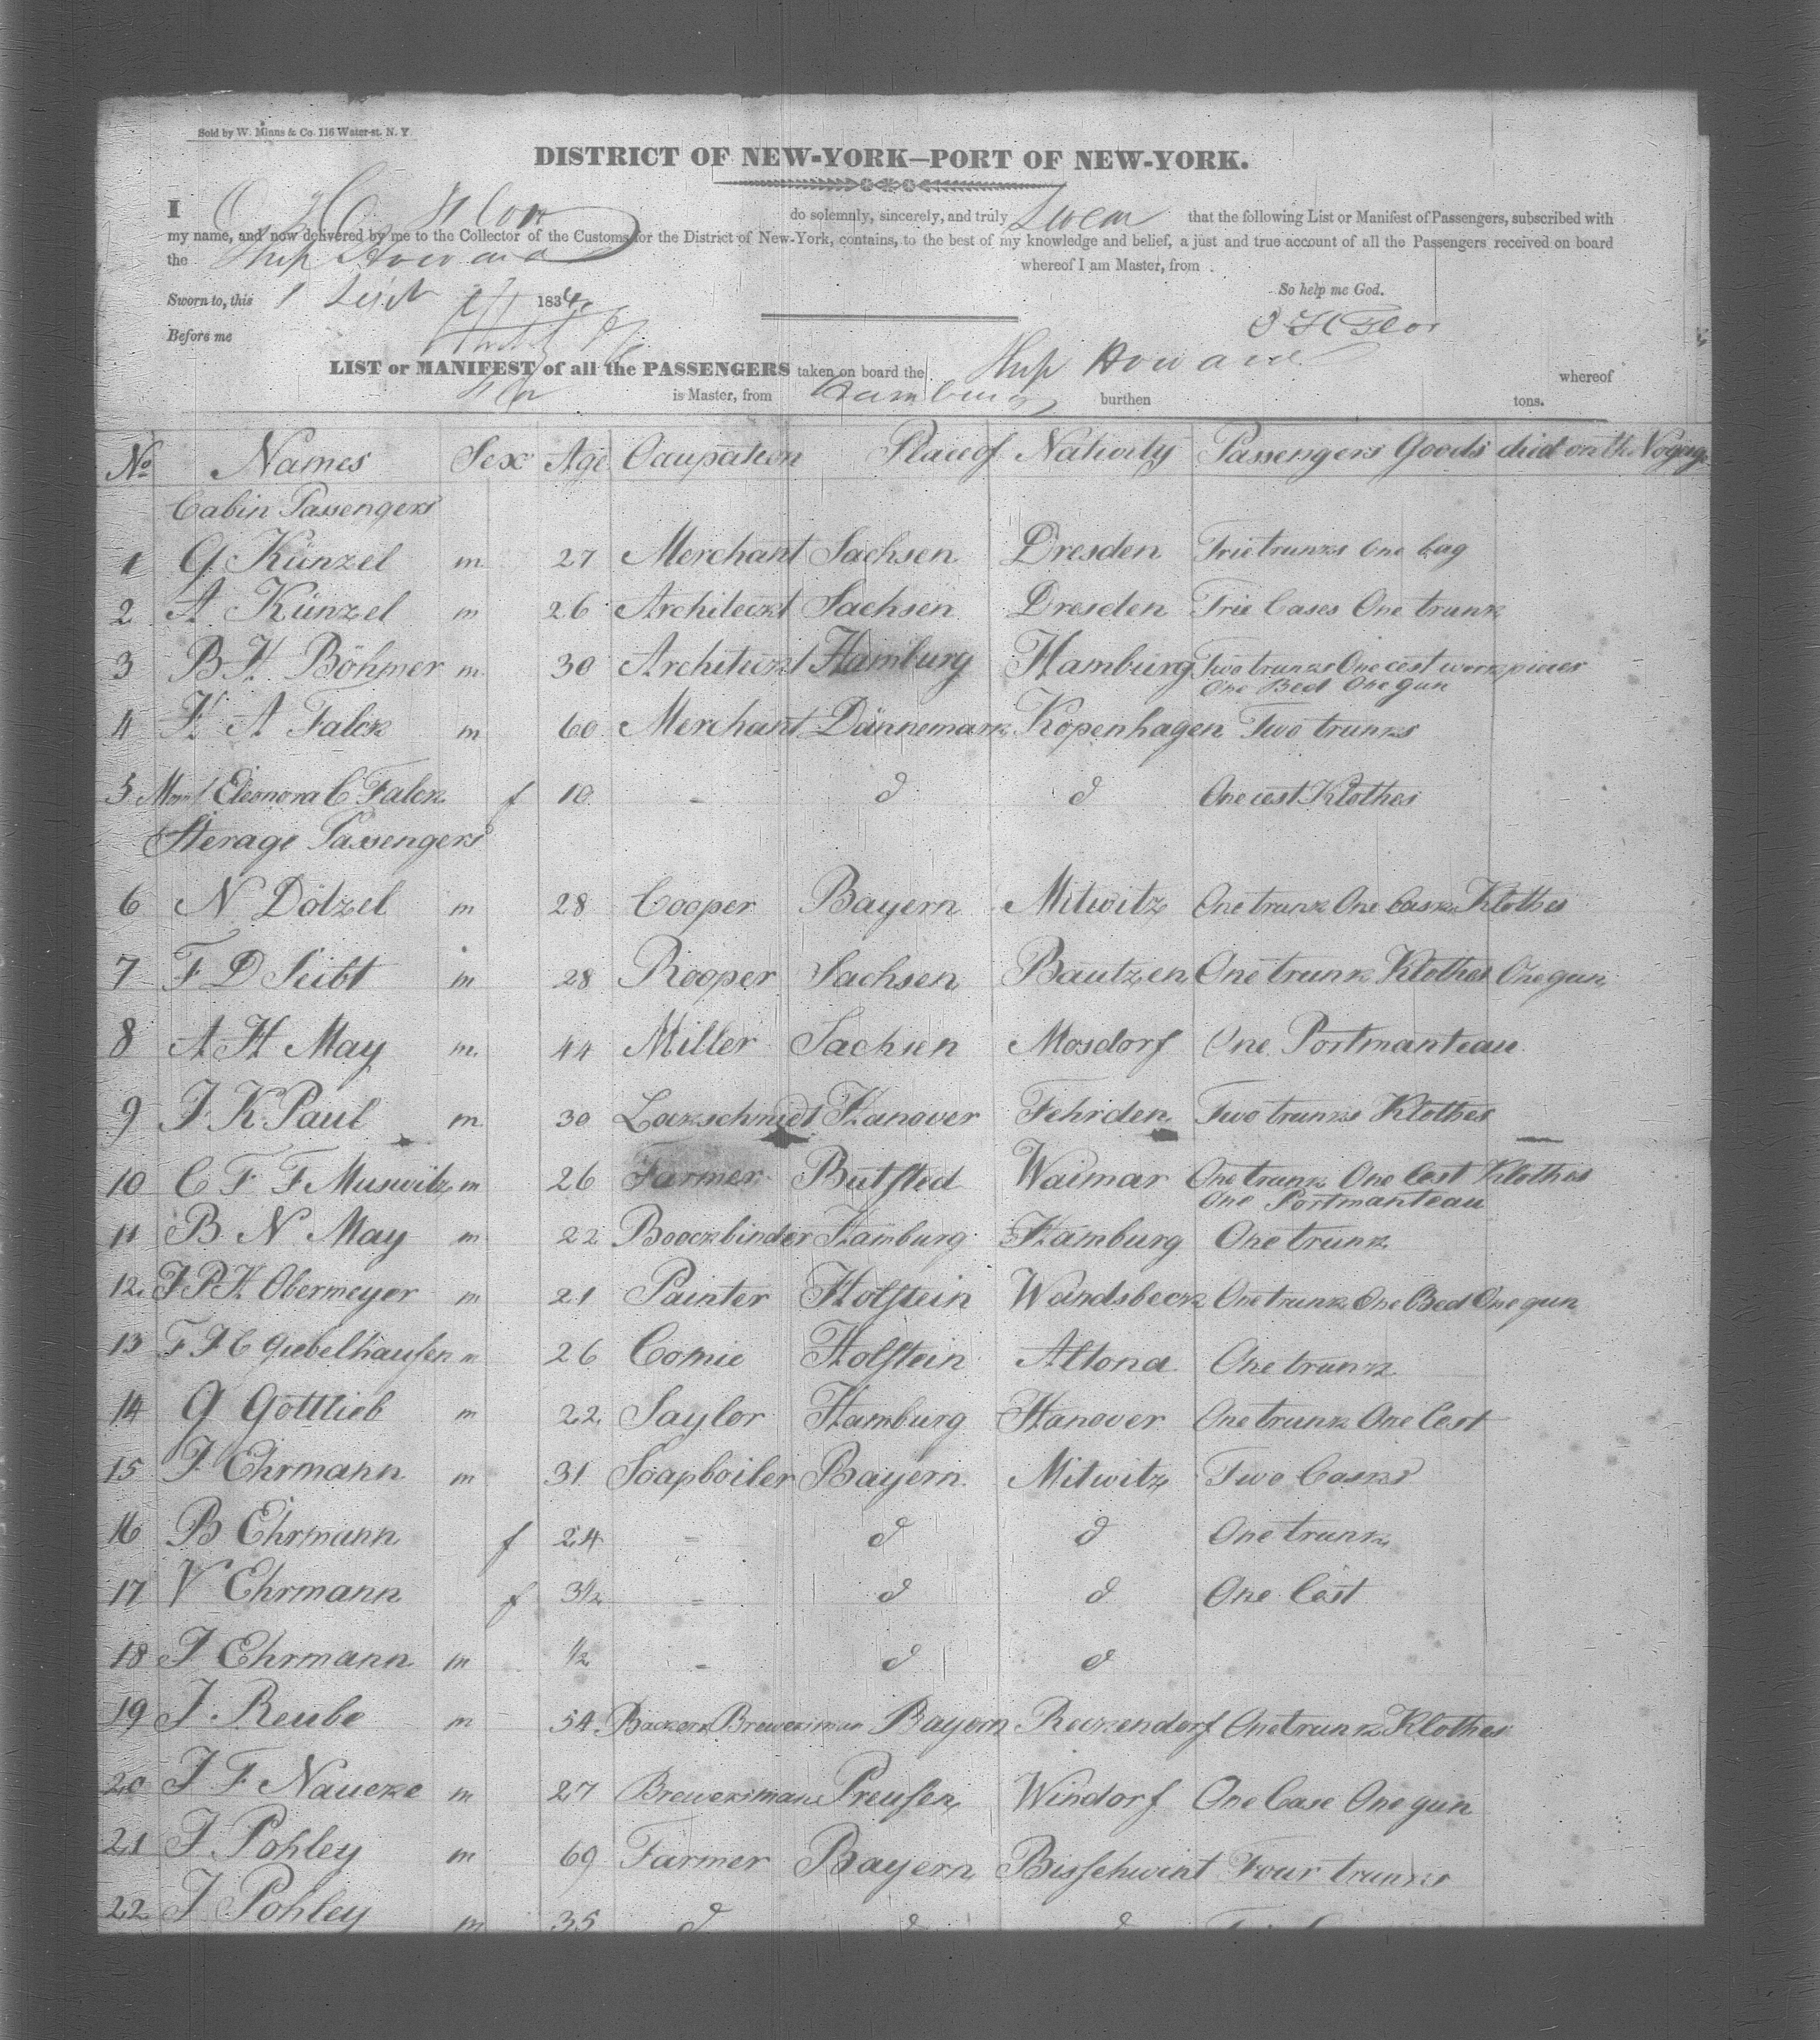 Sold by W. Minns & Co. 116 Water-st. N. Y.
DISTRICT OF NEW-YORK—PORT OF NEW-YORK.
I do solemnly, sincerely, and truly Swear that the following List or Manifest of Passengers, subscribed with
my name, and now delivered by me to the Collector of the Customs for the District of New-York, contains, to the best of my knowledge and belief, a just and true account of all the Passengers received on board
the Ship Howard whereof I am Master, from
Sworn to, this 1 Sept 1834 So help me God.
Before me
LIST or MANIFEST of all the PASSENGERS taken on board the Ship Howard whereof
is Master, from Hamburg burthen tons.
No Names Sex Age Ocupation Place of Nativity Passengers Goods died on the Vogage
Cabin Passengers
1 G Künzel m 27 Merchant Sachsen Dresden Trie trunks One bag
2 A Künzel m 26 Architeckt Sachsen Dresden Trie Cases One trunk
3 B H Böhmer m 30 Architeckt Hamburg Hamburg Two trunks One cest workpieces
One Bed One gun
4 H A Falck m 60 Merchant Dännemark Kopenhagen Two trunks
5 Eleonora C Falck f 10 - d d One cest Klothes
Sterage Passengers
6 N Dötzel m 28 Cooper Bayern Mitwitz One trunk One Cask Klothes
7 F D Seibt m 28 Rooper Sachsen Bautzen One trunk Klothes One gun
8 A H May m. 44 Miller Sachsen Mosdorf One Portmanteau
9 J K Paul m 30 Lockschmidt Hanover Fehrden Two trunks Klothes
10 C F F Muswitz m 26 Farmer Butsted Waimar One trunk One Cest Klothes
One Portmanteau
11 B N May m 22 Boockbinder Hamburg Hamburg One trunk
12 J P H Obermeyer m 21 Painter Holstein Wandsbeck One trunk One Bed One gun
13 F J C Giebelhausen m 26 Comie Holstein Altona One trunk
14 G Gottlieb m 22 Saylor Hamburg Hanover One trunk One Cest
15 J Ehrmann m 31 Soapboiler Bayern Mitwitz Two Casks
16 B Ehrmann f 24 - d d One trunk
17 V Ehrmann f 3½ - d d One Cest
18 J Ehrmann m ½ - d d
19 J Reube m 54 Backer Brewersman Bayern Reckendorf One trunk Klothes
20 J F Naucke m 27 Brewersman Preusen Windorf One Case One gun
21 J Pohley m 69 Farmer Bayern Bisschwint Four trunks
22 J Pohley m 35 d d d